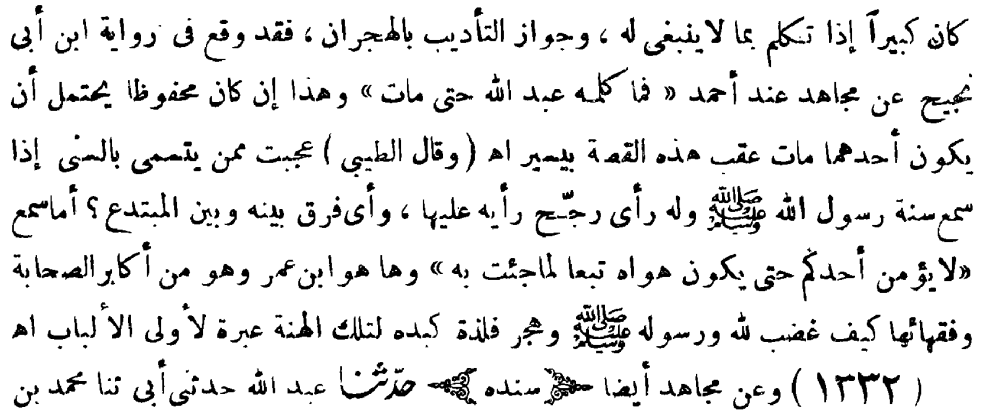 كان كبيراً إذا تكلم بما لاينبغى له ، وجواز التأديب بالهجران ، فقد وقع فى رواية ابن أبى
نجيح عن مجاهد عند أحمد « فما كلمه عبد الله حتى مات » وهذا إن كان محفوظا يحتمل أن
يكون أحدهما مات عقب هذه القصة بيسير اهـ ( وقال الطيبى ) عجبت ممن يتسمى بالسنى إذا
سمع سنة رسول الله ﷺ وله رأى رجّح رأيه عليها ، وأى فرق بينه وبين المبتدع ؟ أما سمع
«لا يؤمن أحدكم حتى يكون هواه تبعا لما جئت به» وها هو ابن عمر وهو من أكابر الصحابة
وفقهائها كيف غضب لله ورسوله ﷺ وهجر فلذة كبده لتلك الهنة عبرة لأولى الألباب اهـ
( ١٣٣٢ ) وعن مجاهد أيضا ﴿ سنده ﴾ حدّثنا عبد الله حدثنى أبى ثنا محمد بن